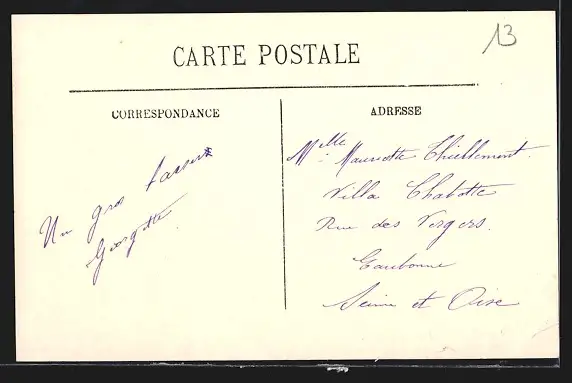 13
CARTE POSTALE
CORRESPONDANCE
Un gros baiser
Georgette
ADRESSE
Melle Mauricette Thiellement.
Villa Chabotte
Rue des Vergers.
Eaubonne
Seine et Oise